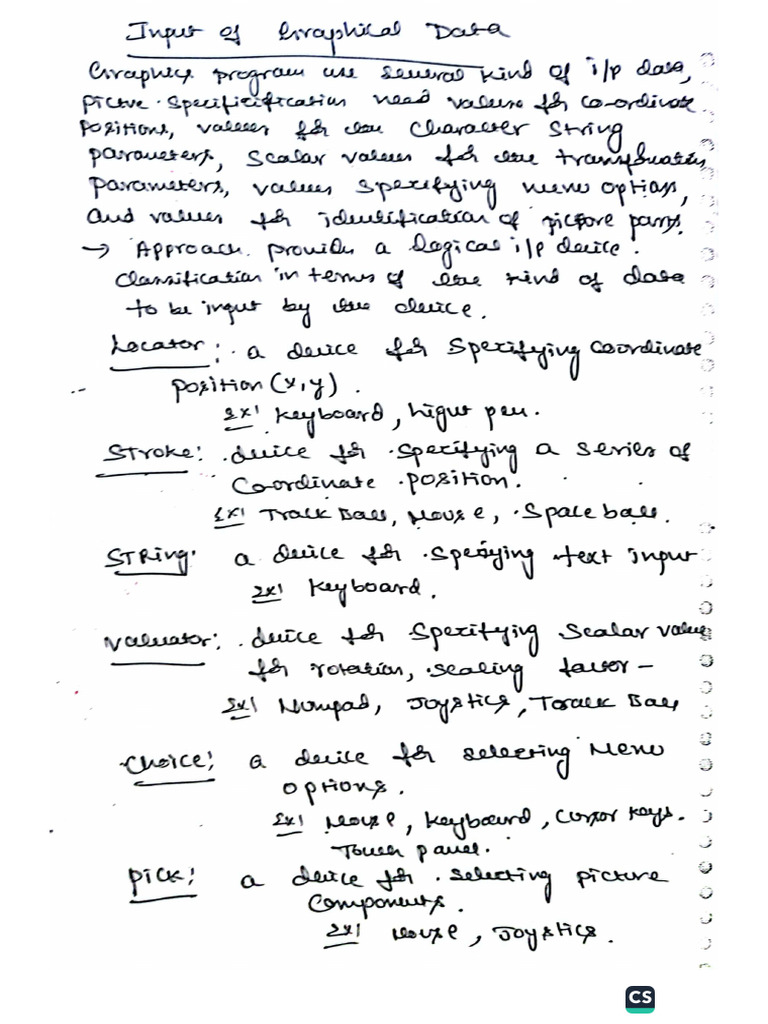 Input of Graphical Data
Graphics program use several kind of i/p data,
picture specificification need values for co-ordinate
positions, values for the character string
parameters, scalar values for the transformation
parameters, values specifying menu options,
and values for identification of picture parts.
→ Approach provides a logical i/p device.
classification in terms of the kind of data
to be input by the device.
Locator: a device for specifying coordinate
position (x,y).
Ex! Keyboard, light pen.
Stroke: device for specifying a series of
co-ordinate position.
Ex! Track Ball, Mouse, Space ball.
STRING: a device for specifying text input
Ex! Keyboard.
Valuator: device for specifying scalar value
for rotation, scaling factor –
Ex! Numpad, Joystick, Track Ball
Choice! a device for selecting Menu
options.
Ex! Mouse, Keyboard, Cursor keys.
Touch panel.
Pick! a device for selecting picture
components.
Ex! Mouse, Joystick.
CS